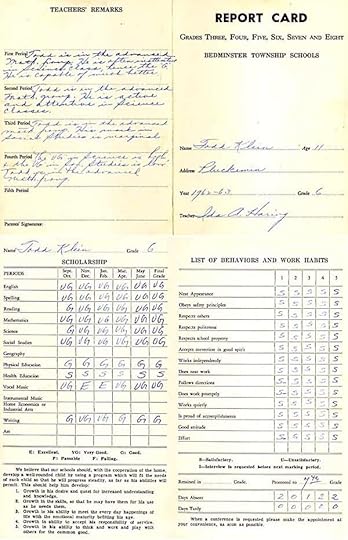 TEACHERS' REMARKS
First Period Todd is in the advanced
Math. group. He is often inattentive
in Science class, hence the G.
He is capable of much better.
Second Period Todd is in the advanced
Math. group. He is active
and attentive in Science
classes.
Third Period Todd is in the advanced
math group. His work in
Social Studies is marginal
Fourth Period The VG in Science is high
& the VG in Soc. Studies is low
Todd is in the advanced
Math group
Fifth Period
Parents' Signatures:
REPORT CARD
GRADES THREE, FOUR, FIVE, SIX, SEVEN AND EIGHT
BEDMINSTER TOWNSHIP SCHOOLS
Name Todd Klein Age 11
Address Pluckemin
Year 1962-63 Grade 6
Teacher Ida A. Haring
Name Todd Klein Grade 6
SCHOLARSHIP
PERIODS Sept. Oct. Nov. Dec. Jan. Feb. Mar. Apr. May June Final Grade
English VG VG VG VG VG VG
Spelling
Reading
Mathematics
Science
Social Studies
Geography
Physical Education G G G G G G
Health Education S S S S S S
Vocal Music VG E E VG VG VG
Instrumental Music
Home Economics or
Industrial Arts
Writing G VG VG G G G
Art
E: Excellent. VG: Very Good. G: Good.
F: Passable F: Failing.
We believe that our schools should, with the cooperation of the home,
develop a well-rounded child by using a program which will fit the needs
of each child so that he will progress steadily, as far as his abilities will
permit. This should help him develop:
1. Growth in his desire and quest for increased understanding
and knowledge.
2. Growth in the skills, so that he may have them for his use
as he needs them.
3. Growth in his ability to meet the every day happenings of
life with the emotional maturity befitting his age.
4. Growth in ability to accept his responsibility of service.
5. Growth in his ability to think and work and play with
others for the common good.
LIST OF BEHAVIORS AND WORK HABITS
1 2 3 4 5
Neat Appearance S S S S S
Obeys safety principles S S S S S
Respects others S S S S S
Respects politeness S S S S S
Respects school property S S S S S
Accepts correction in good spirit S S S S S
Works independently S S S S S
Does neat work S S S S S
Follows directions S S S S S
Does work promptly S S S S S
Works quietly S S S S S
Is proud of accomplishments S S S S S
Good attitude S S S S S
Effort S S S S S
S—Satisfactory. U—Unsatisfactory.
I—Interview is requested before next marking period.
Remained in Grade. Promoted to 7th Grade
Days Absent 2 0 1 2 2
Days Tardy 0 0 0 0
When a conference is requested please make the appointment at
your convenience, as soon as possible.